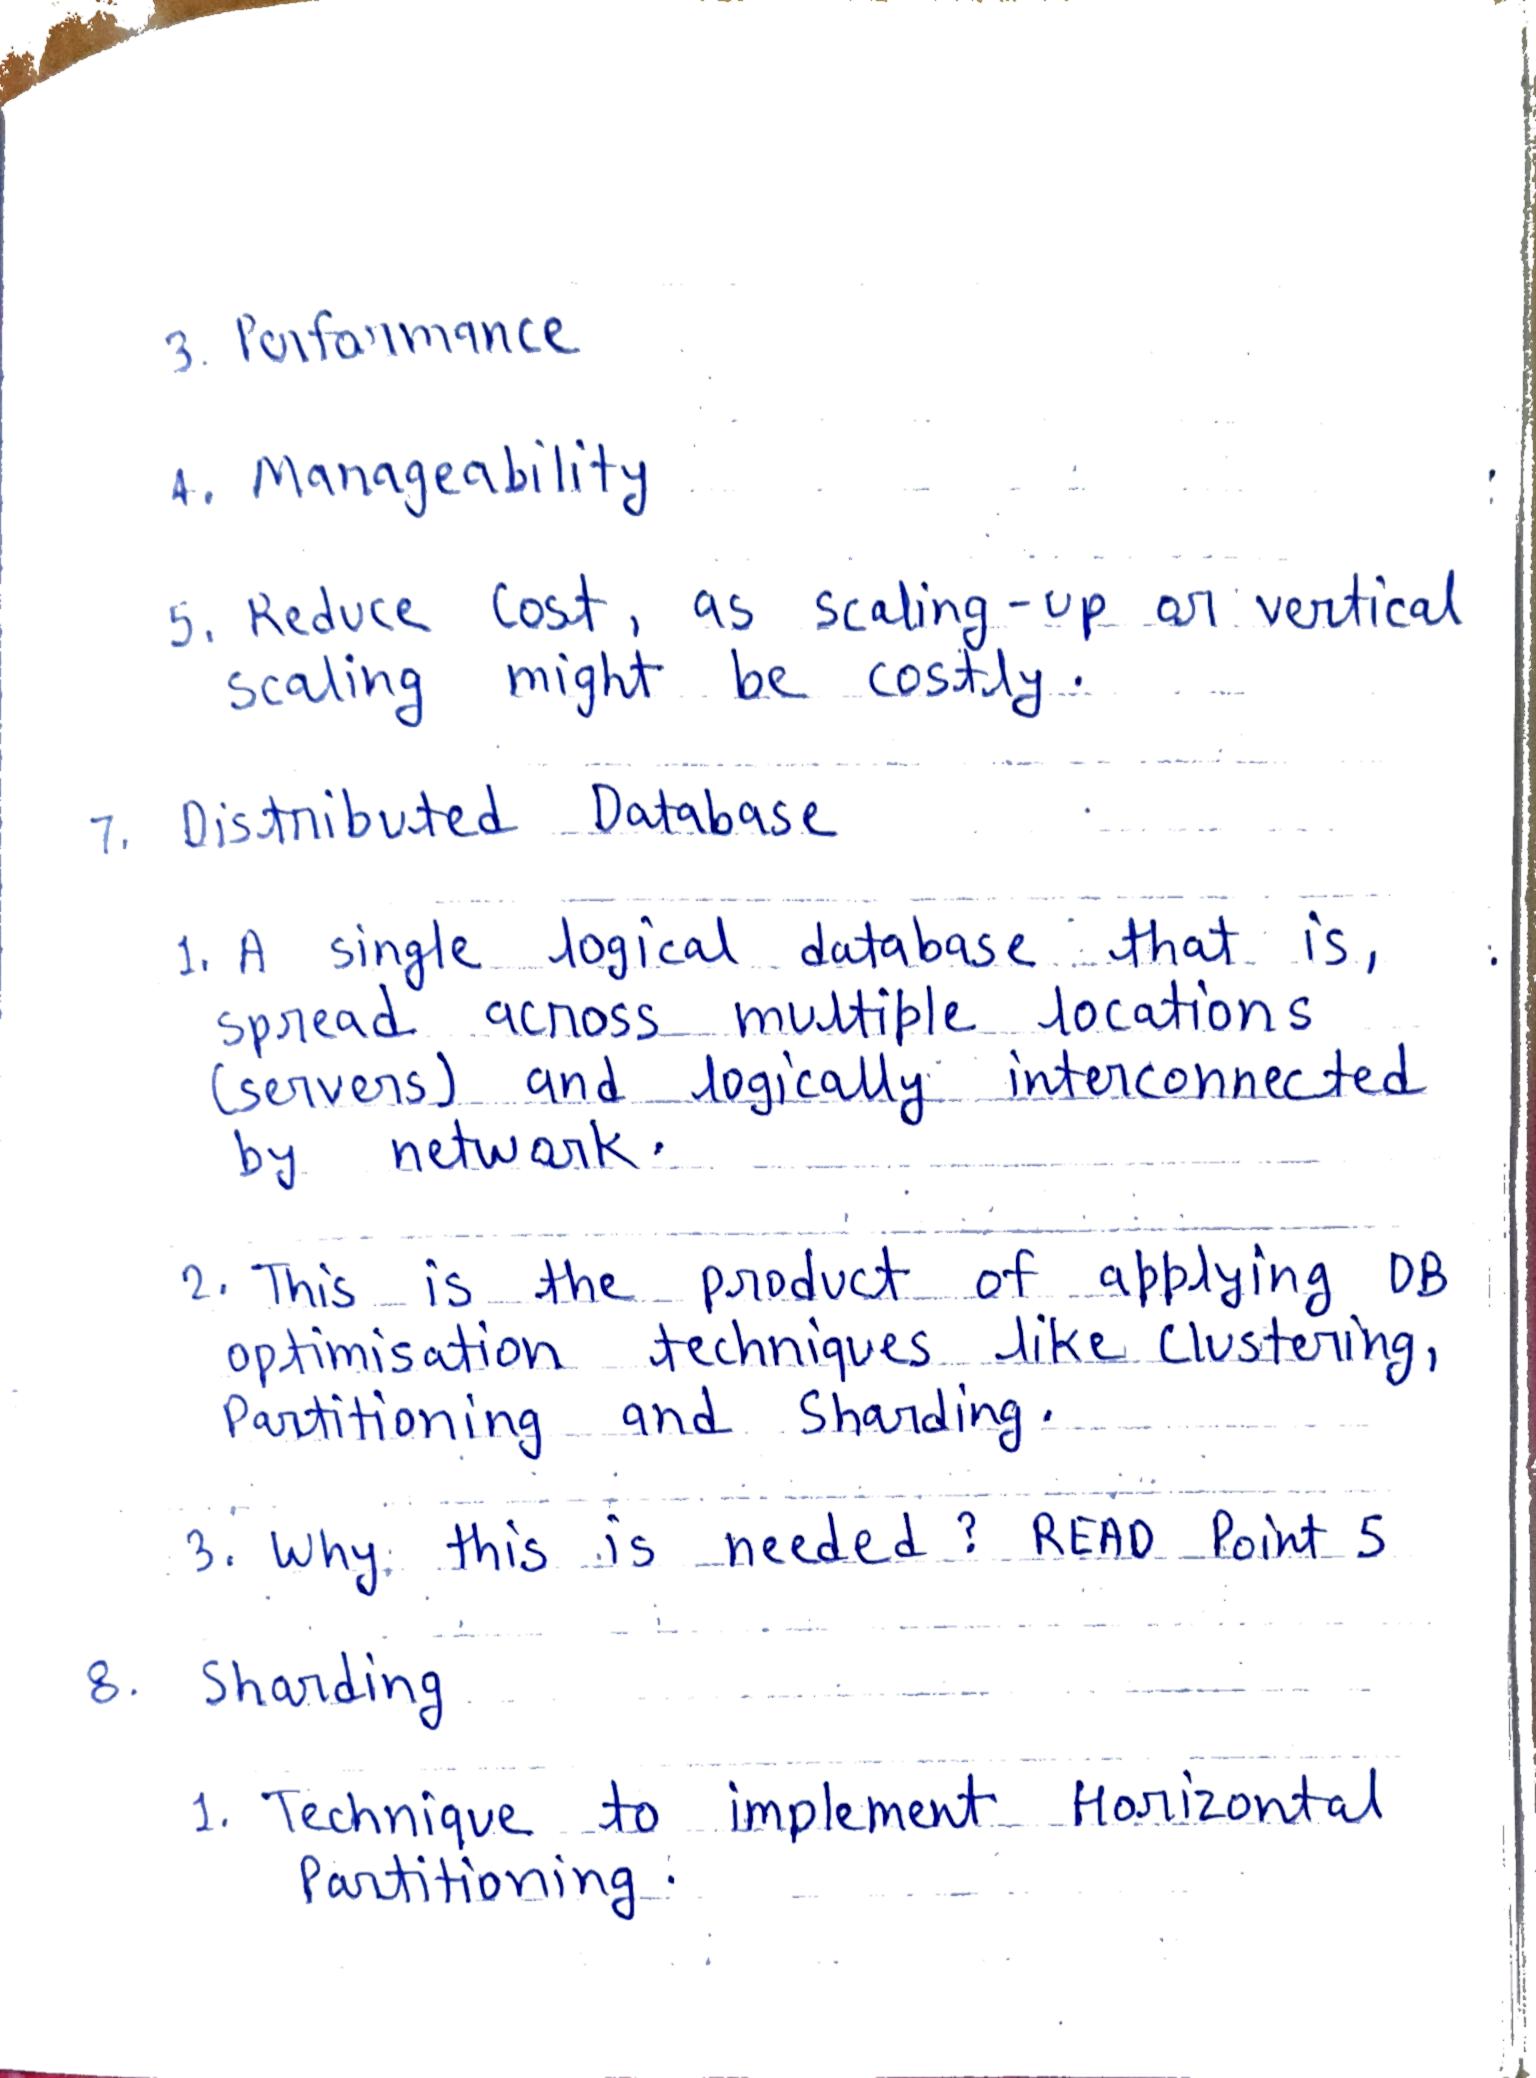 3. Performance
4. Manageability
5. Reduce Cost, as scaling-up or vertical
scaling might be costly.
7. Distributed Database
1. A single logical database that is,
spread across multiple locations
(servers) and logically interconnected
by network.
2. This is the product of applying DB
optimisation techniques like Clustering,
Partitioning and Sharding.
3. Why this is needed? READ Point 5
8. Sharding
1. Technique to implement Horizontal
Partitioning.